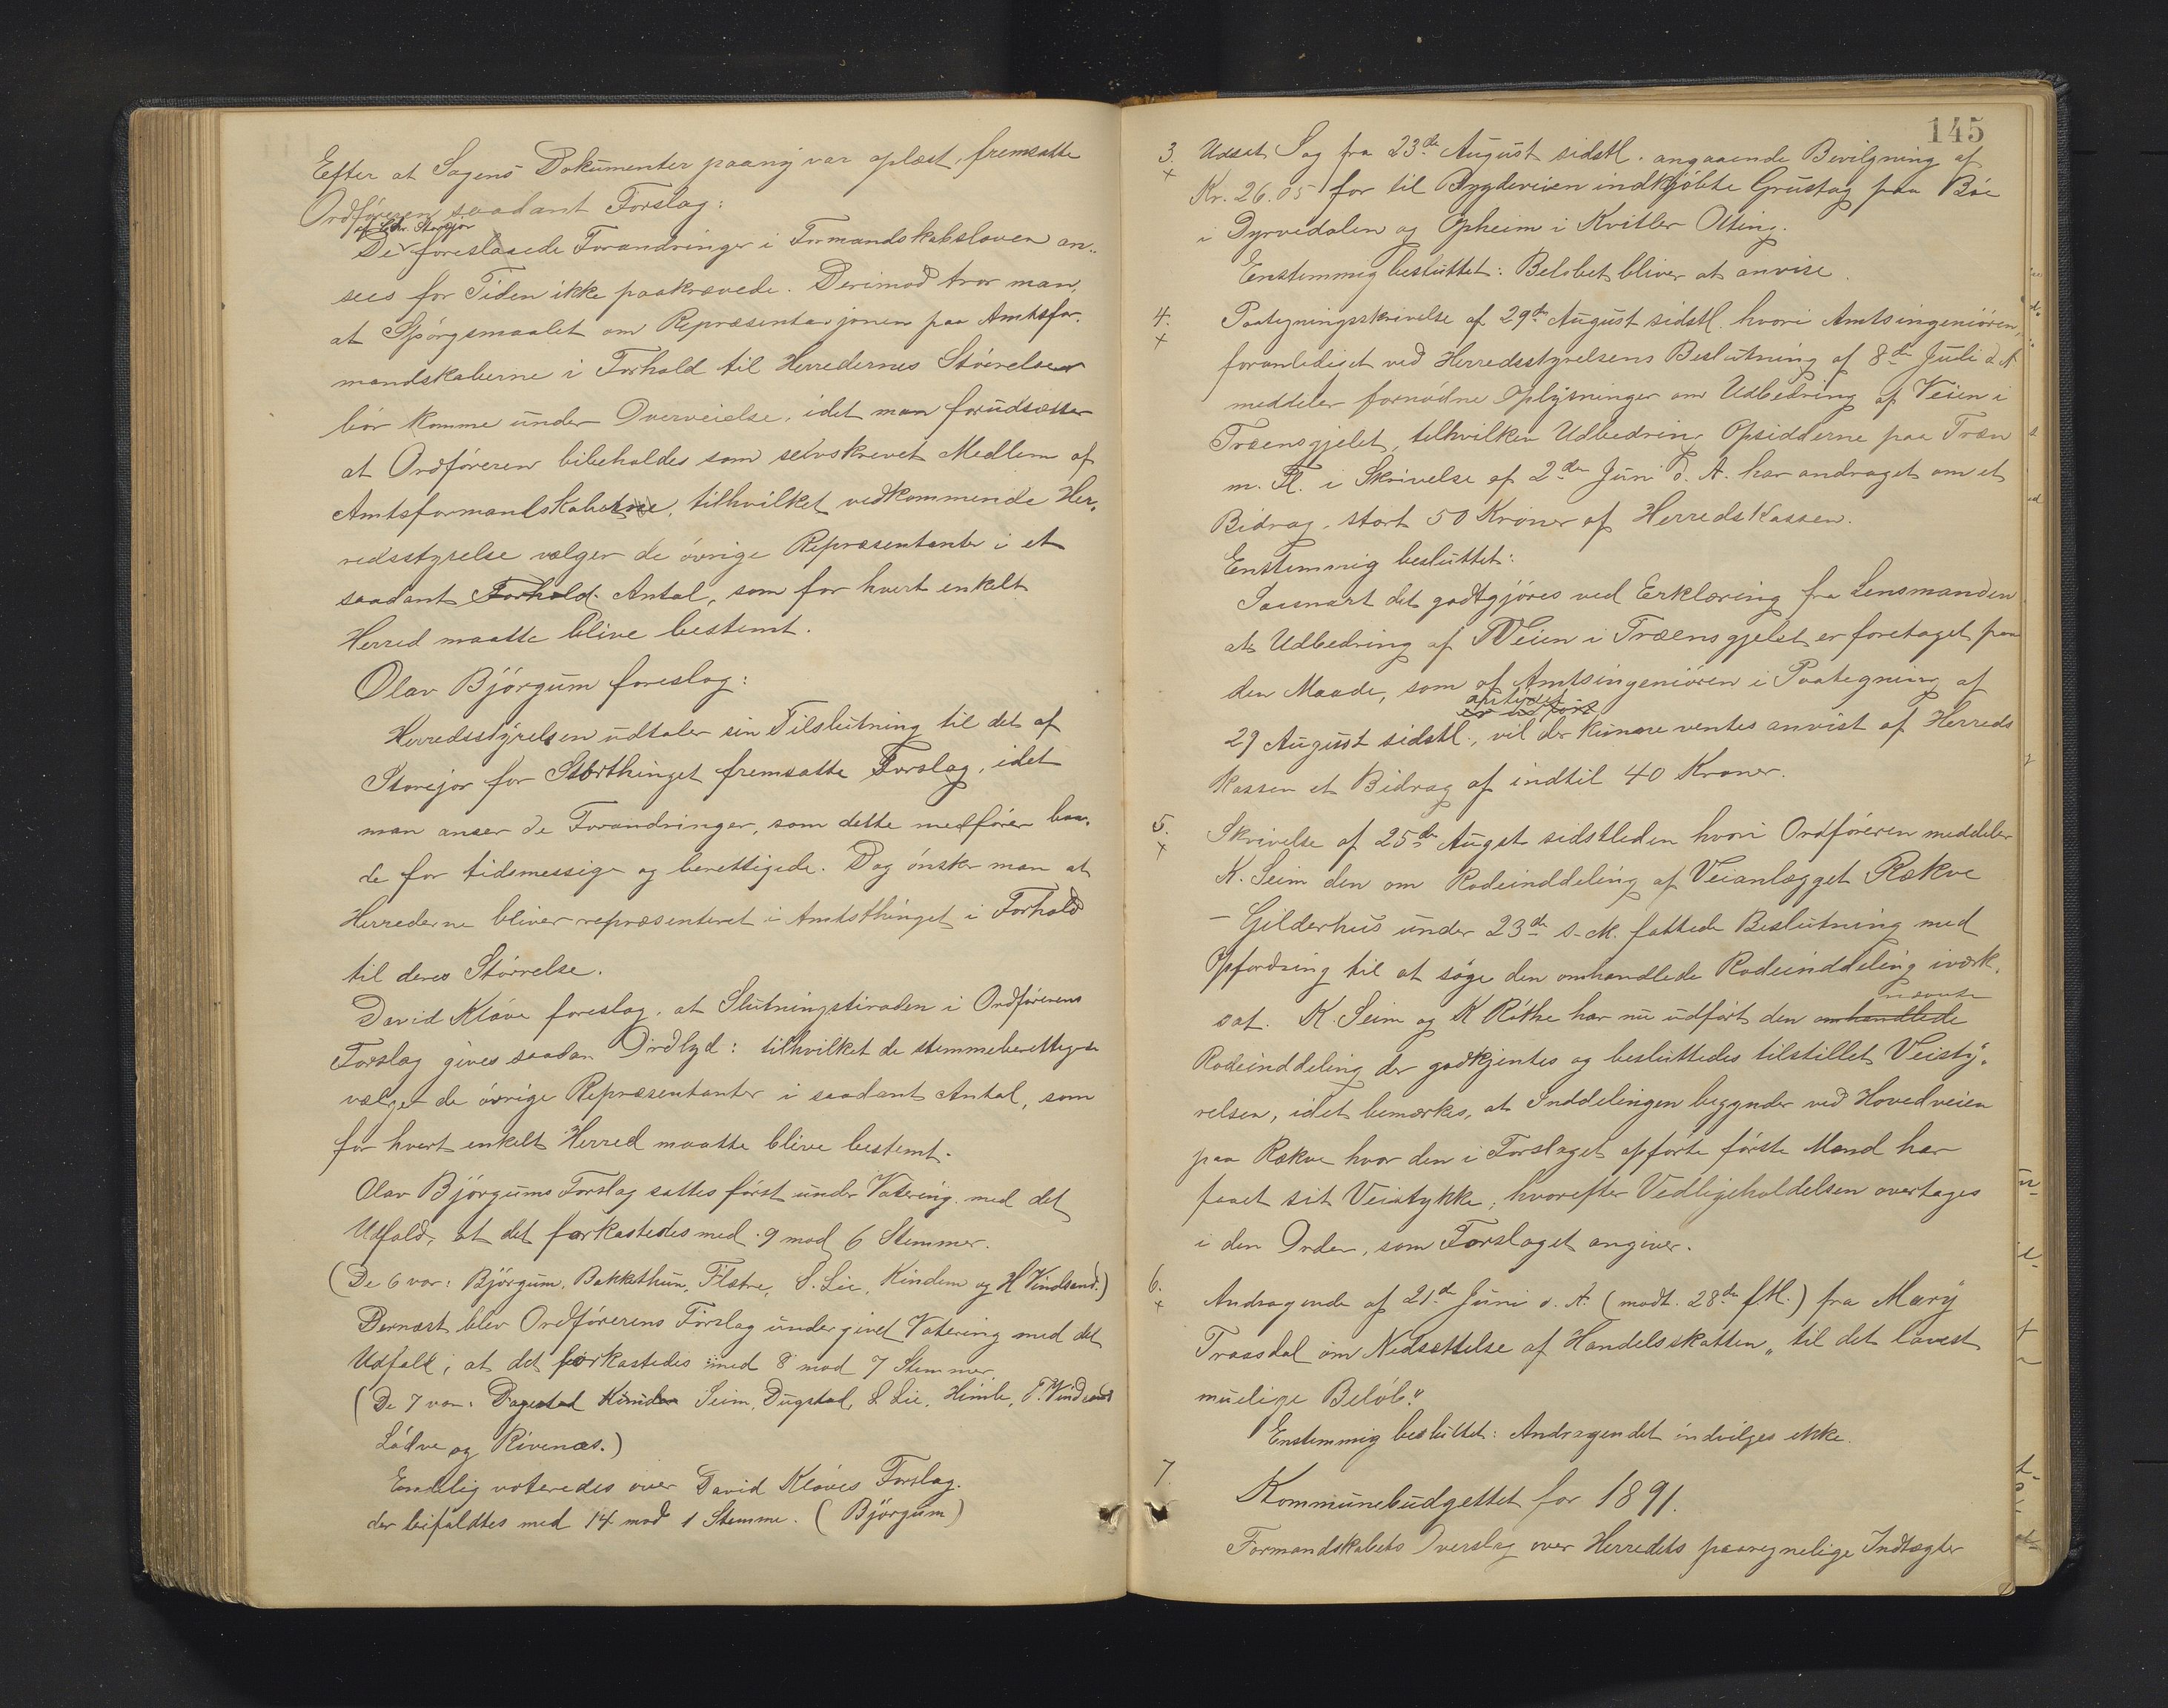 Efter at Sagens Dokumenter paany var oplæst, fremsatte
Ordføreren saadant Forslag:
af Sth. Storejor
De foreslaaede Forandringer i Formandskabsloven an-
sees for Tiden ikke paakrævede. Derimod tror man,
at Spørgsmaalet om Repræsentasjonen paa Amtsfor-
mandskaberne i Forhold til Herredernes Størrelser
bør komme under Overveielse, idet man forudsætter
at Ordføreren bibeholdes som selvskrevet Medlem af
Amtsformandskabet, tilhvilket vedkommende Her-
redsstyrelse vælger de øvrige Repræsentanter i et
saadant Forhold Antal, som for hvert enkelt
Herred maatte blive bestemt.
Olav Bjørgum foreslog:
Herredsstyrelsen udtaler sin Tilslutning til det af
Storejor for Storthinget fremsatte Forslag, idet
man anser de Forandringer, som dette medfører baa-
de for tidsmessige og berettigede. Dog ønsker man at
Herrederne bliver repræsenteret i Amtsthinget i Forhold
til deres Størrelse.
David Kløve foreslog, at Slutningstiraden i Ordførerens
Forslag gives saadan Ordlyd: tilhvilket de stemmeberettigede
vælger de øvrige Repræsentanter i saadant Antal, som
for hvert enkelt Herred maatte blive bestemt.
Olav Bjørgums Forslag sattes først under Votering med det
Udfald, at det forkastedes med 9 mod 6 Stemmer.
(De 6 var: Bjørgum, Bakkethun, Flatre, S. Lie, Kindem og H Vindsand.)
Dernæst blev Ordførerens Forslag undergivet Votering med det
Udfald, at det forkastedes med 8 mod 7 Stemmer.
(De 7 var: Dagestad Seim, Dugstad, S Lie, Himle, T. Vindsand
Lødve og Rivenæs.)
Endelig voteredes over David Kløves Forslag.
der bifaldtes med 14 mod 1 Stemme. (Bjørgum)
145
3. Udsat Sag fra 23de August sidstl. angaaende Bevilgning af
x Kr. 26.05 for til Bygdeveien indkjøbte Grustag paa Bøe
i Dyrvedalen og Opheim i Kvitler Otting.
Enstemmig besluttet: Beløbet bliver at anvise.
4. Paategningsskrivelse af 29de August sidstl. hvori Amtsingeniøren,
x foranlediget ved Herredsstyrelsens Beslutning af 8de Juli d. A
meddeler fornødne Oplysninger om Udbedring af Veien i
Træensgjelet, tilhvilken Udbedring Opsidderne paa Træn
m. Fl. i Skrivelse af 2den Juni d. A. har andraget om et
Bidrag, stort 50 Kroner af Herredskassen.
Enstemmig besluttet:
Saasnart det godtgjøres ved Erklæring fra Lensmanden
at Udbedring af Veien i Træensgjelet er foretaget paa
den Maade, som af Amtsingeniøren i Paategning af
antydet
er udført
29 August sidstl., vil der kunne ventes anvist af Herreds
kassen et Bidrag af indtil 40 Kroner.
5. Skrivelse af 25de Augst sidstleden hvori Ordføreren meddeler
x K. Seim den om Rodeinddeling af Veianlægget Rekve
- Gjelderhus under 23de s. M. fattede Beslutning med
Opfordring til at søge den omhandlede Rodeinddeling iværk-
nævnte
sat. K. Seim og K Røthe har nu udført den omhandlede
Rodeinddeling der godkjentes og besluttedes tilstillet Veisty-
relsen, idet bemærkes, at Inddelingen begynder ved Hovedveien
paa Rekve hvor den i Forslaget opførte første Mand har
faaet sit Veistykke, hvorefter Vedligeholdelsen overtages
i den Orden, som Forslaget angiver.
6. Andragende af 21de Juni d. A. (modt. 28de f. M.) fra Mary
x Traasdal om Nedsættelse af Handelsskatten "til det lavest
muelige Beløb".
Enstemmig besluttet: Andragendet indvilges ikke.
7. Kommunebudgettet for 1891.
Formandskabets Overslag over Herredets paaregnelige Indtægter